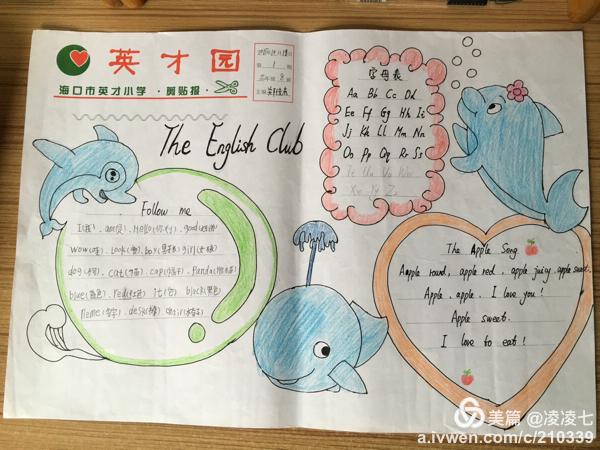 英才园
海口市英才小学·剪贴报·
第 1 期
The English Club
字母表
Aa Bb Cc Dd
Ee Ff Gg Hh Ii
Jj Kk Ll Mm Nn
Oo Pp Qq Rr Ss
Tt Uu Vv Ww
Xx Yy Zz
Follow me
I(我)、am(是)、Hello(你好)、good(好的)
wow(哇)、look(看)、box(盒子)、girl(女孩)
dog(小狗)、cat(小猫)、cap(帽子)、Panda(熊猫)
blue(蓝色)、red(红色)、It(它)、black(黑色)
Name(名字)、desk(桌)、chair(椅子)
The Apple Song
Apple round, apple red, apple juicy, apple sweet.
Apple, apple. I love you!
Apple sweet.
I love to eat!
美篇 @凌凌七
a.ivwen.com/c/210339